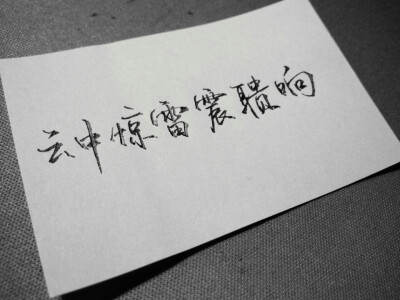 云中惊雷震聩响